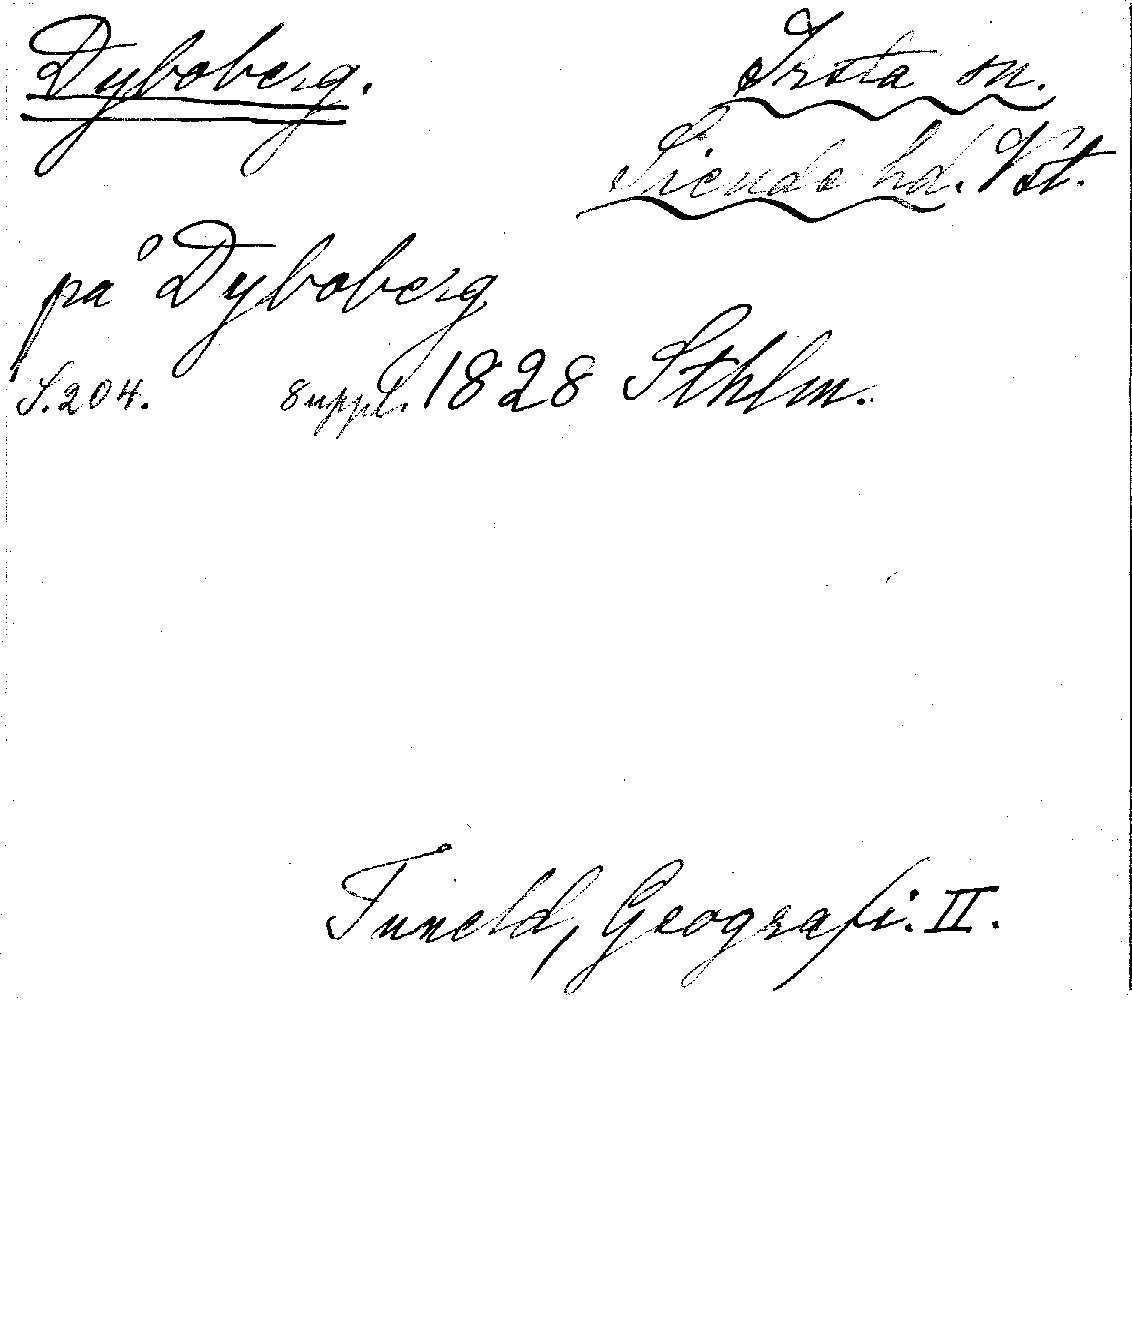 Dyboberg.
Irsta sn.
Siende hd. Vst.
på Dyboberg
S. 204. suppl. 1828 Sthlm.
Tuneld, Geografi. II.